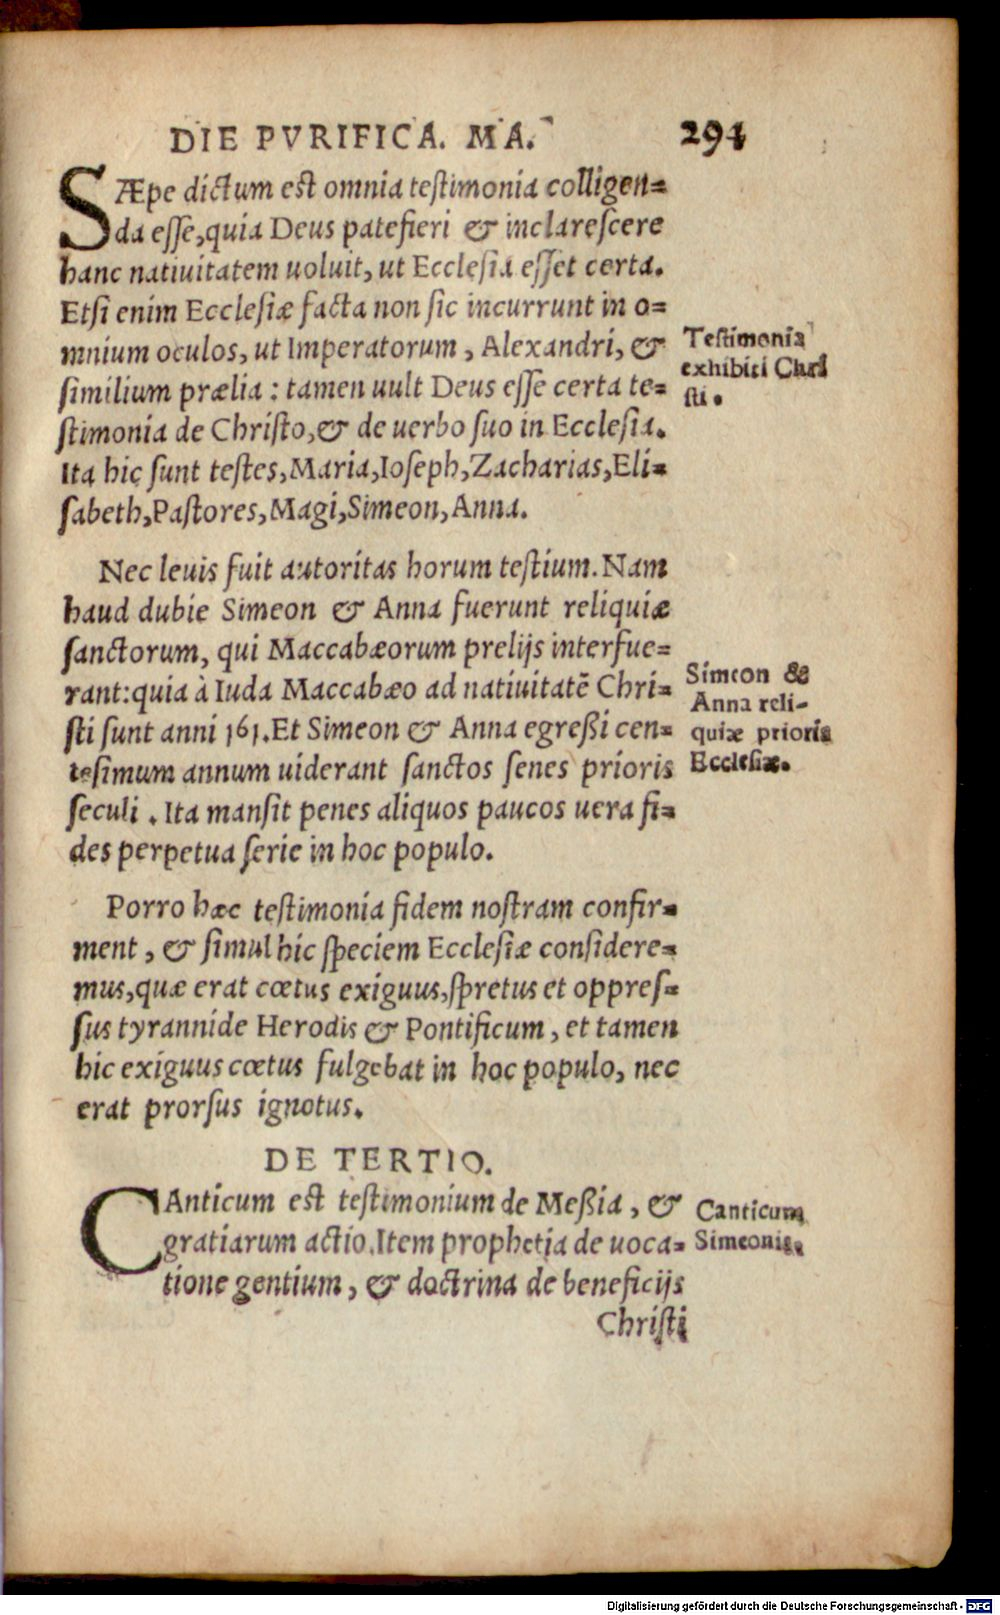 DIE PVRIFICA. MA. 294
SÆpe dictum est omnia testimonia colligen=
da esse, quia Deus patefieri & inclarescere
hanc natiuitatem uoluit, ut Ecclesia esset certa.
Etsi enim Ecclesiæ facta non sic incurrunt in o=
mnium oculos, ut Imperatorum, Alexandri, &
similium prælia: tamen uult Deus esse certa te=
stimonia de Christo, & de uerbo suo in Ecclesia.
Ita hic sunt testes, Maria, Ioseph, Zacharias, Eli=
sabeth, Pastores, Magi, Simeon, Anna.
Testimonia
exhibiti Chri
sti.
Nec leuis fuit autoritas horum testium. Nam
haud dubie Simeon & Anna fuerunt reliquiæ
sanctorum, qui Maccabæorum prelijs interfue=
rant: quia à Iuda Maccabæo ad natiuitatē Chri=
sti sunt anni 161. Et Simeon & Anna egreßi cen=
tesimum annum uiderant sanctos senes prioris
seculi. Ita mansit penes aliquos paucos uera fi=
des perpetua serie in hoc populo.
Simeon &
Anna reli-
quiæ prioris
Ecclesiæ.
Porro hæc testimonia fidem nostram confir=
ment, & simul hic speciem Ecclesiæ considere=
mus, quæ erat cœtus exiguus, spretus et oppres=
sus tyrannide Herodis & Pontificum, et tamen
hic exiguus cœtus fulgebat in hoc populo, nec
erat prorsus ignotus.
DE TERTIO.
CAnticum est testimonium de Meßia, &
gratiarum actio. Item prophetia de uoca=
tione gentium, & doctrina de beneficijs
Christi
Canticum
Simeonis.
Digitalisierung gefördert durch die Deutsche Forschungsgemeinschaft - DFG